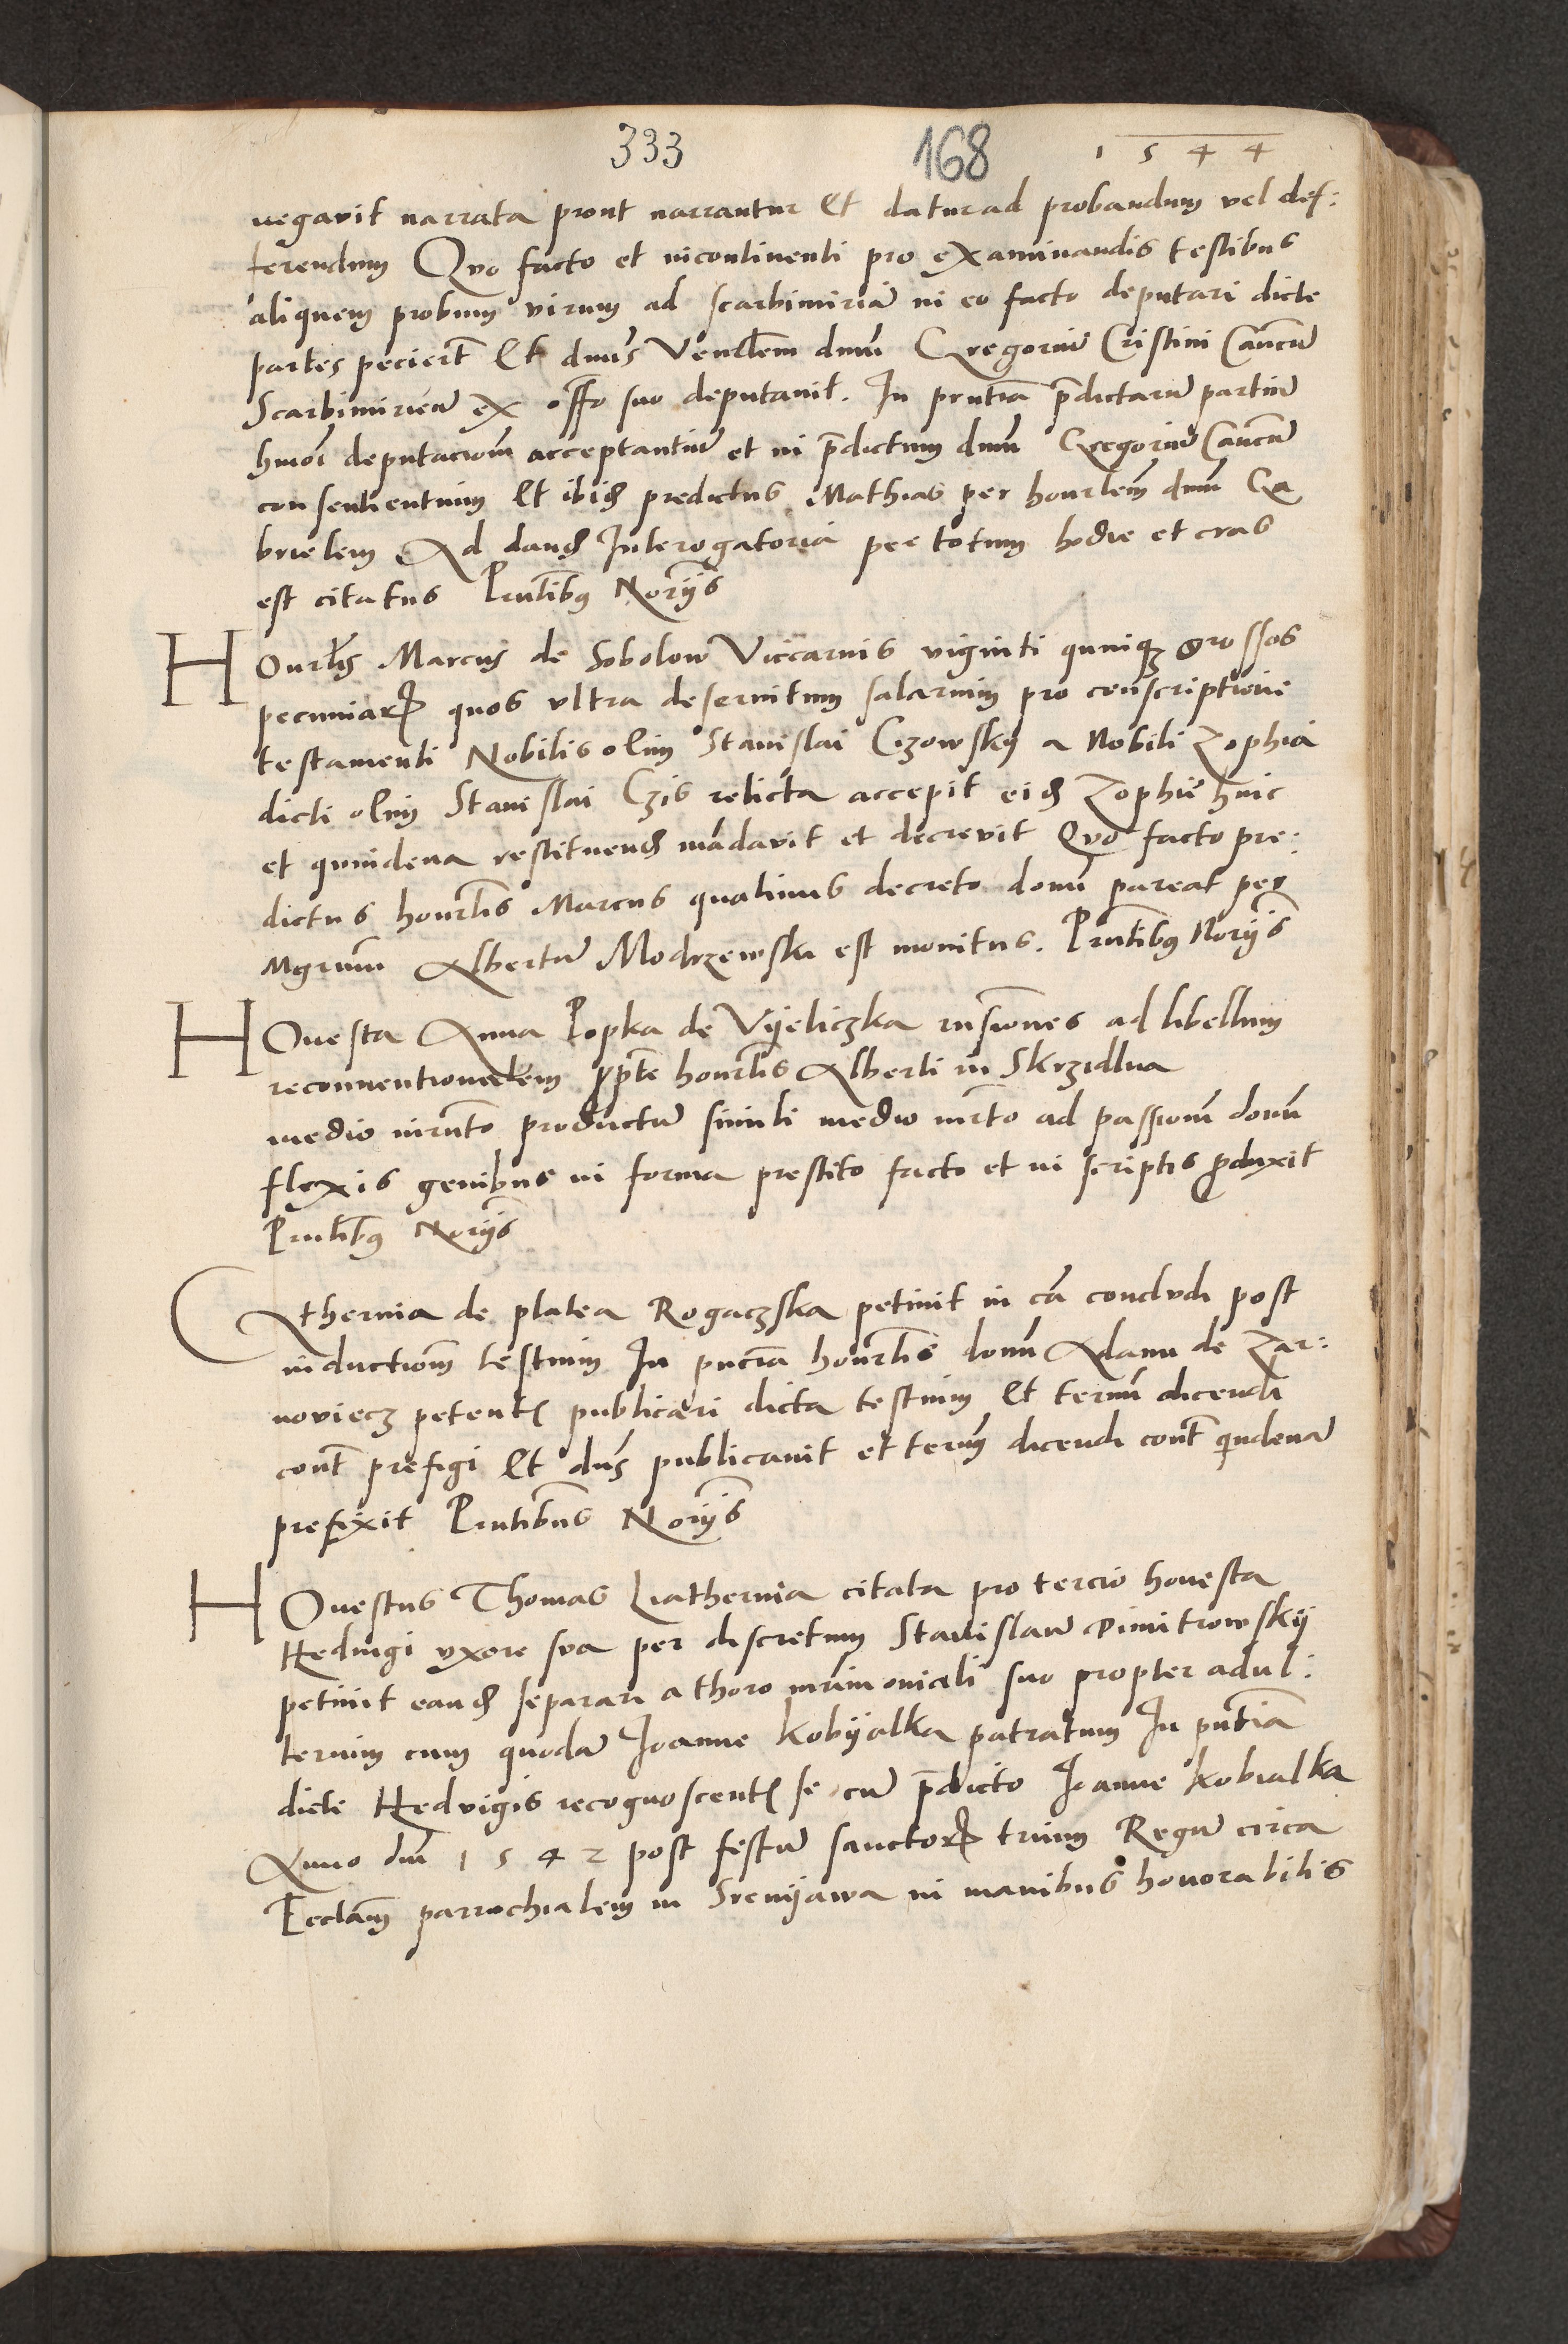 333 168 1544
negavit narrata prout narrantur Et datur ad probandum vel def:
ferendum Quo facto et incontinenti pro examinandis testibus
aliquem probum virum ad scarbimiriā in eo facto deputari dicte
partes peciert̄ Et dnūs Venrlem dnūm Gregoriū Cristini Cancūm
Scarbimirieñ ex offo suo deputavit. In prntiā pdictarū partiū
hmōi deputaciom̄ acceptantiū et in pdictum dnūm Gregoriū Cancūm
consentientium Et ibid predictus Mathias per honrlem dnūm Ga
brielem Ad dand Interogatoria per totum hodie et cras
est citatus Pntibq Norijs
Honrlis Marcus de Sobolow Viccarius viginti quinqz grossos
pecuniarꝝ quos ultra deservitum salarium pro conscriptione
testamenti Nobilis olim Stanislai Czowsky a Nobili Zophia
dicti olim Stanislai Czis relicta accepit eid Zophie hinc
et quindena restituend mādavit et decrevit Quo facto pre:
dictus honrlis Marcus quatinus decreto domī pareat per
Mgrūm Albertū Modrzewski est monitus. Pntibq Norijs
Honesta Anna Popka de Vijeliczka rnsiones ad libellum
reconventionalem pp̄te honrlis Alberti in Skrzidlna
medio iurnto productū simili medio iurnto ad passiom̄ domī
flexis genibus in forma prestito facto et in scriptis pduxit
Pntibq Norijs
Cathernia de platea Rogaczska petiuit in cā concludi post
inductiom̄ testium In pncia honrlis domī Adami de Zar:
noviecz petent publicari dicta testium Et termī dicendi
cont̄ prefigi Et dn̄s publicauit et termī dicendi cont̄ qndenā
prefixit Pntibus Norijs
Honestus Thomas Liathernia citata pro tercio honesta
Hedvigi uxore sua per discretum Stanislaū Dimitrowskij
petiuit eand separari a thoro mrimoniali suo propter adul:
terium cum quodā Joanne Kobijalka patratum In pntiā
dicte Hedvigis recognoscent se cū pdicto Joanne Kobialka
Anno dnī 1542 post festū sanctorꝝ trium Regū circa
Eccläm parrochialem in Srenijawa in manibus honorabilis